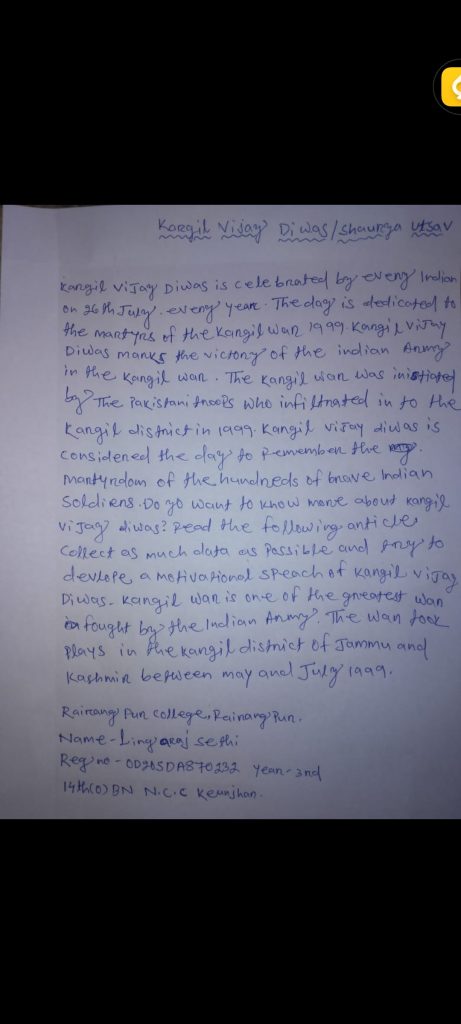 Kargil Vijay Diwas/Shaurya Utsav
Kargil Vijay Diwas is celebrated by every Indian
on 26th July. every year. The day is dedicated to
the martyrs of the Kargil War 1999. Kargil Vijay
Diwas marks the victory of the indian Army
in the Kargil war. The Kargil war was inistiated
by The Pakistani troops who infiltrated in to the
Kargil district in 1999. Kargil vijay diwas is
considered the day to remember the
martyrdom of the hundreds of brave Indian
Soldiers. Do yo want to know more about Kargil
vijay diwas? Read the following article,
Collect as much data as Possible and try to
devlope a motivational Speach of Kargil Vijay
Diwas. Kargil war is one of the greatest war
fought by the Indian Army. The war took
Plays in the Kargil district of Jammu and
Kashmir between may and July 1999.
Rairang Pur College, Rairang Pur.
Name - Lingaraj Sethi
Reg no - OD20SDA870232 Year - 3rd
14th(O) BN N.C.C Keunjhar.